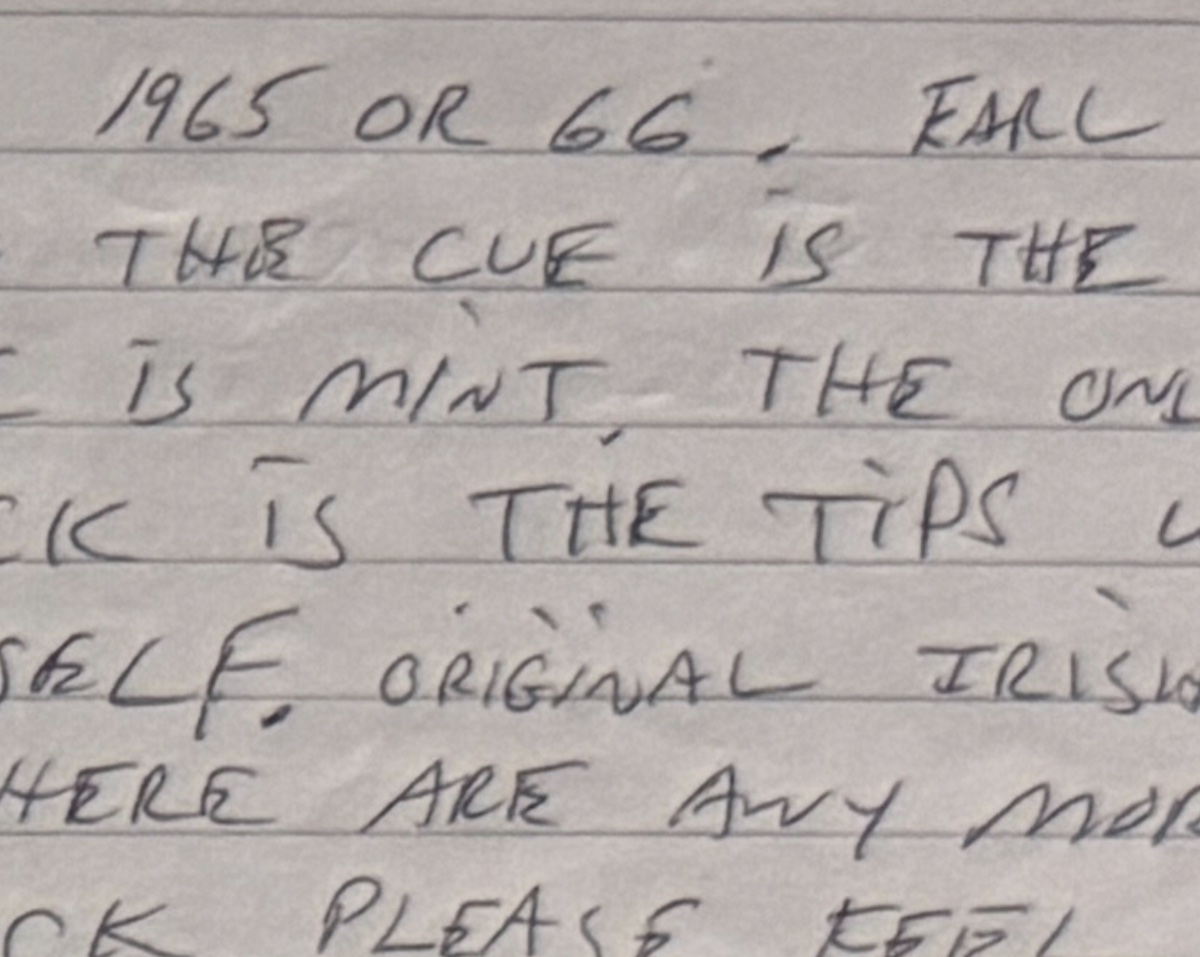 1965 OR 66. EARL
THE CUE IS THE
IS MINT. THE ONL
CK IS THE TIPS
SELF. ORIGINAL IRISH
HERE ARE ANY MOR
CK PLEASE FEEL